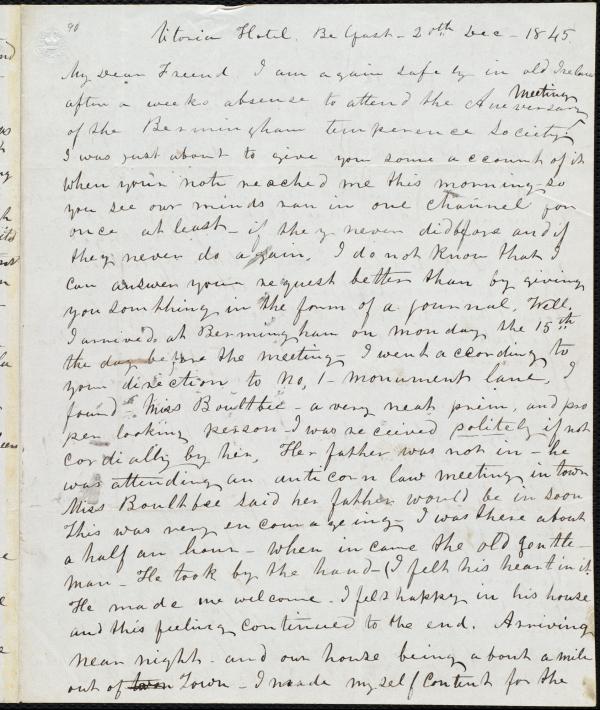 90
Victoria Hotel. Belfast - 20th Dec - 1845
My Dear Friend. I am again safely in old Ireland
after a weeks absense to attend the Aneversary Meeting
of the Bermingham temperence Society.
I was just about to give you some account of it
when your note reached me this morning - so
you see our minds ran in one channel for
once at least - if they never did before and if
they never do again. I do not know that I
can answer your request better than by giving
you somthing in the form of a journal. Well.
I arrived at Bermingham on monday the 15th
the day before the meeting - I went according to
your direction to No, 1 - monument lane, I
found Miss Boultbee - a very neat prim, and pro
per looking person - I was received politely if not
cordially by her, Her father was not in - he
was attending an anti corn law meeting in town
Miss Boultbee said her father would be in soon
This was very encourageing - I was there about
a half an hour - when in came the old gentle-
man - He took by the hand - (I felt his heart in it.
He made me welcome - I felt happy in his house
and this feeling continued to the end. Arriving
near night - and our house being about a mile
out of town Town - I made myself content for the